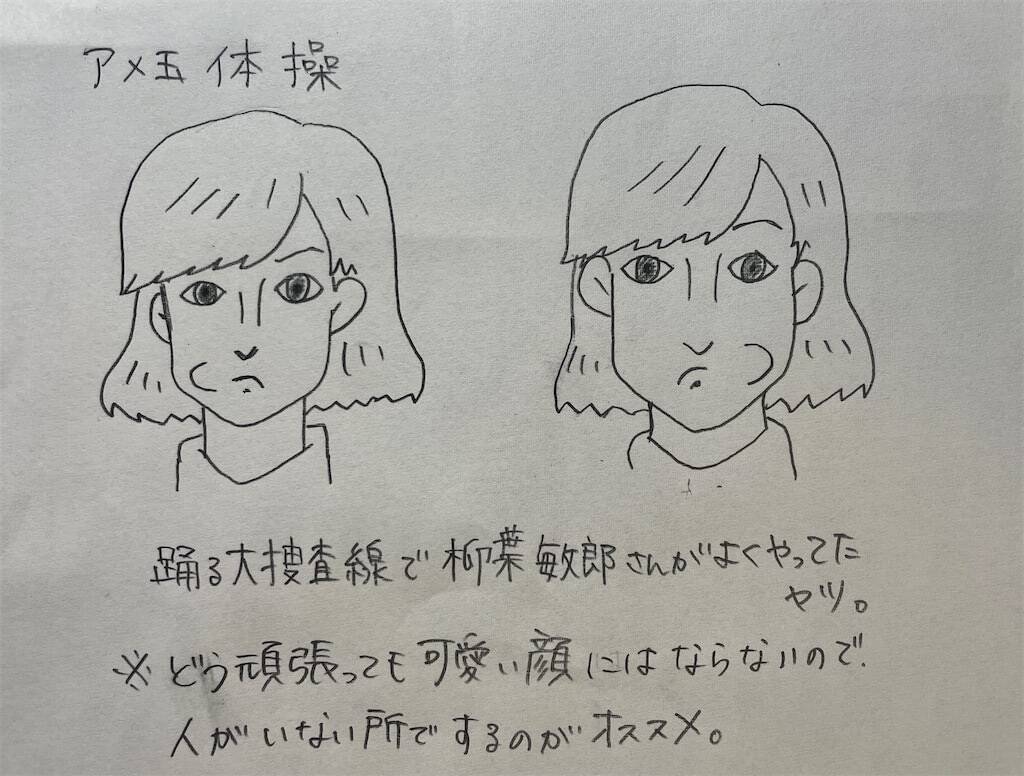 アメ玉体操
踊る大捜査線で柳葉敏郎さんがよくやってた
ヤツ。
※どう頑張っても可愛い顔にはならないので、
人がいない所でするのがオススメ。